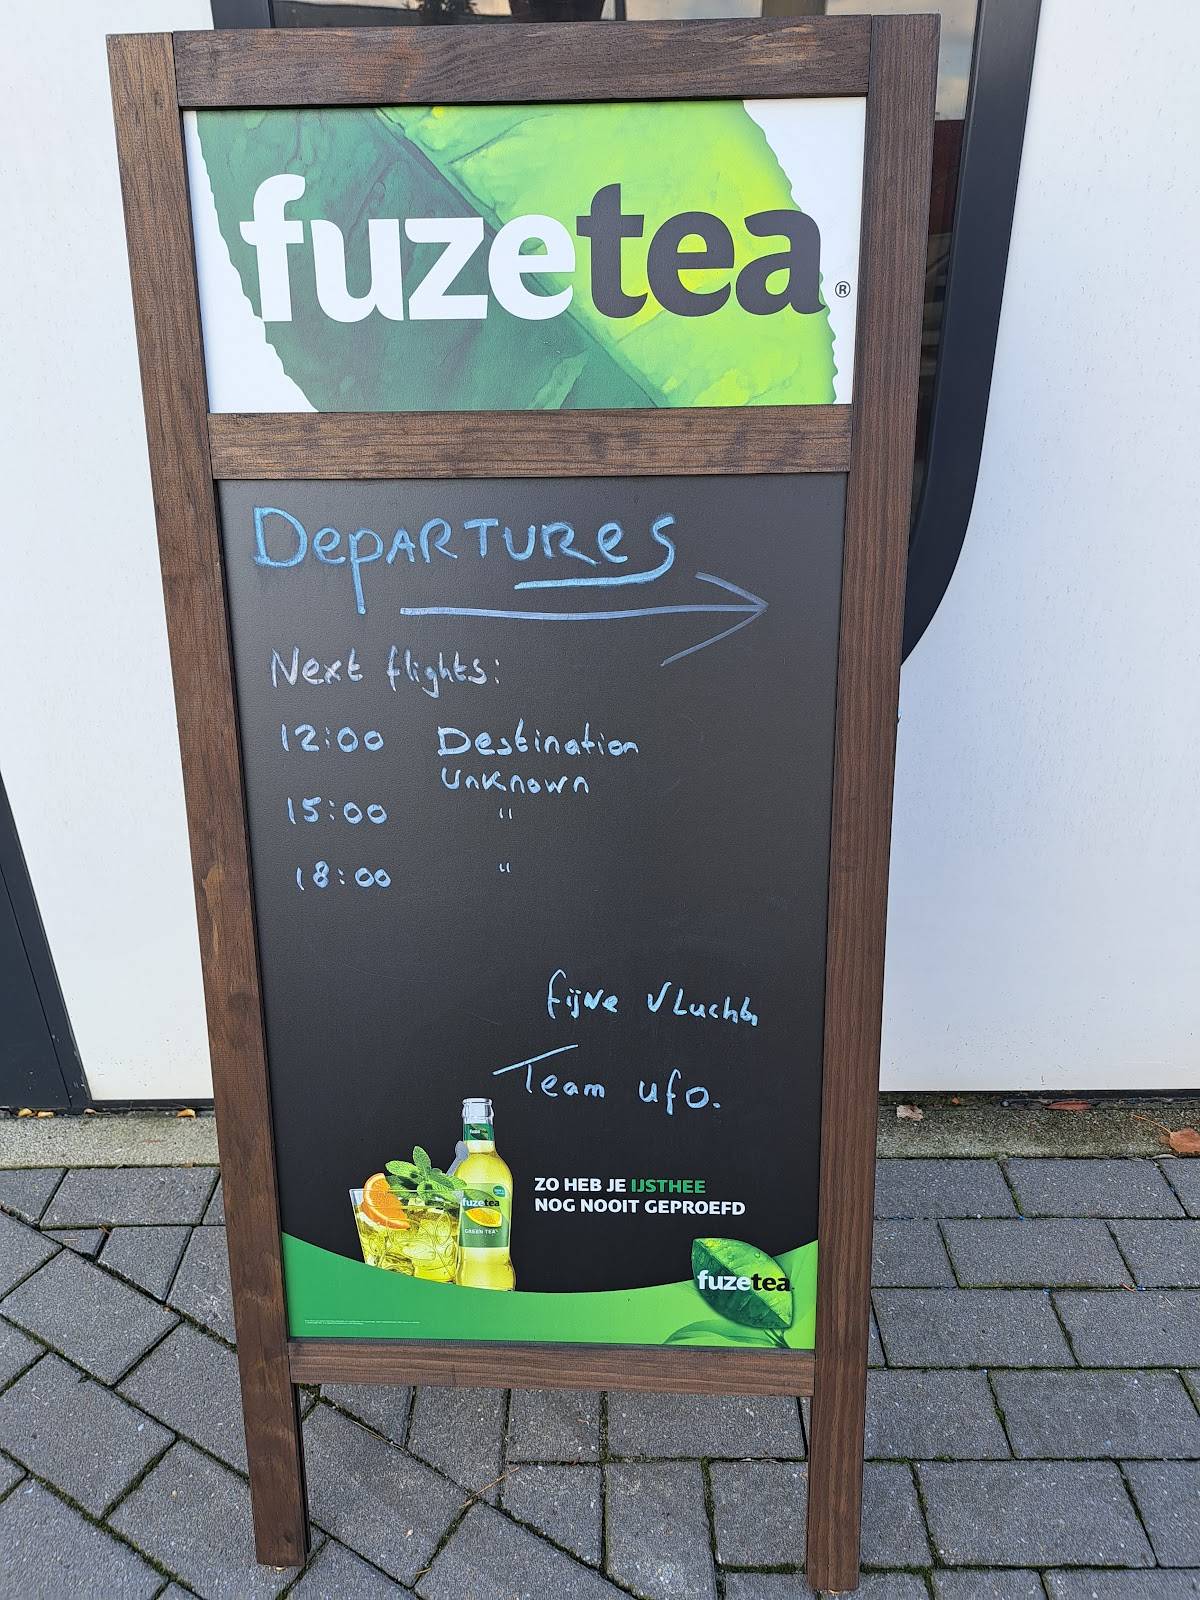 fuzetea®
DepARTURes
Next flights:
12:00 Destination
Unknown
15:00 "
18:00 "
fijne Vlucht,
Team ufo.
ZO HEB JE IJSTHEE
NOG NOOIT GEPROEFD
fuzetea
GREEN TEA
fuzetea